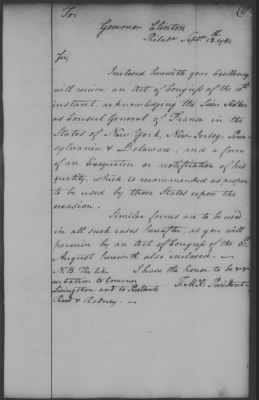 To
Governor Clinton
Philada Septr. 12th. 1781
Sir,
Inclosed herewith your Excellency
will receive an Act of Congress of the 10th
instant, acknowledging the Sieur
as Consul General of France in the
States of New York, New Jersey, Penn-
sylvania & Delaware, and a form
of an Exequatur or notification of his
quality, which is recommended as proper
to be used by those States upon the
occasion.
Similar forms are to be used
in all such cases hereafter, as you will
perceive by an Act of Congress of the
August herewith also inclosed. —
N.B. The like I have the honor to be &c
to Governor T. M:K. President.
Livingston and to Presidents
Reed & Rodney. —